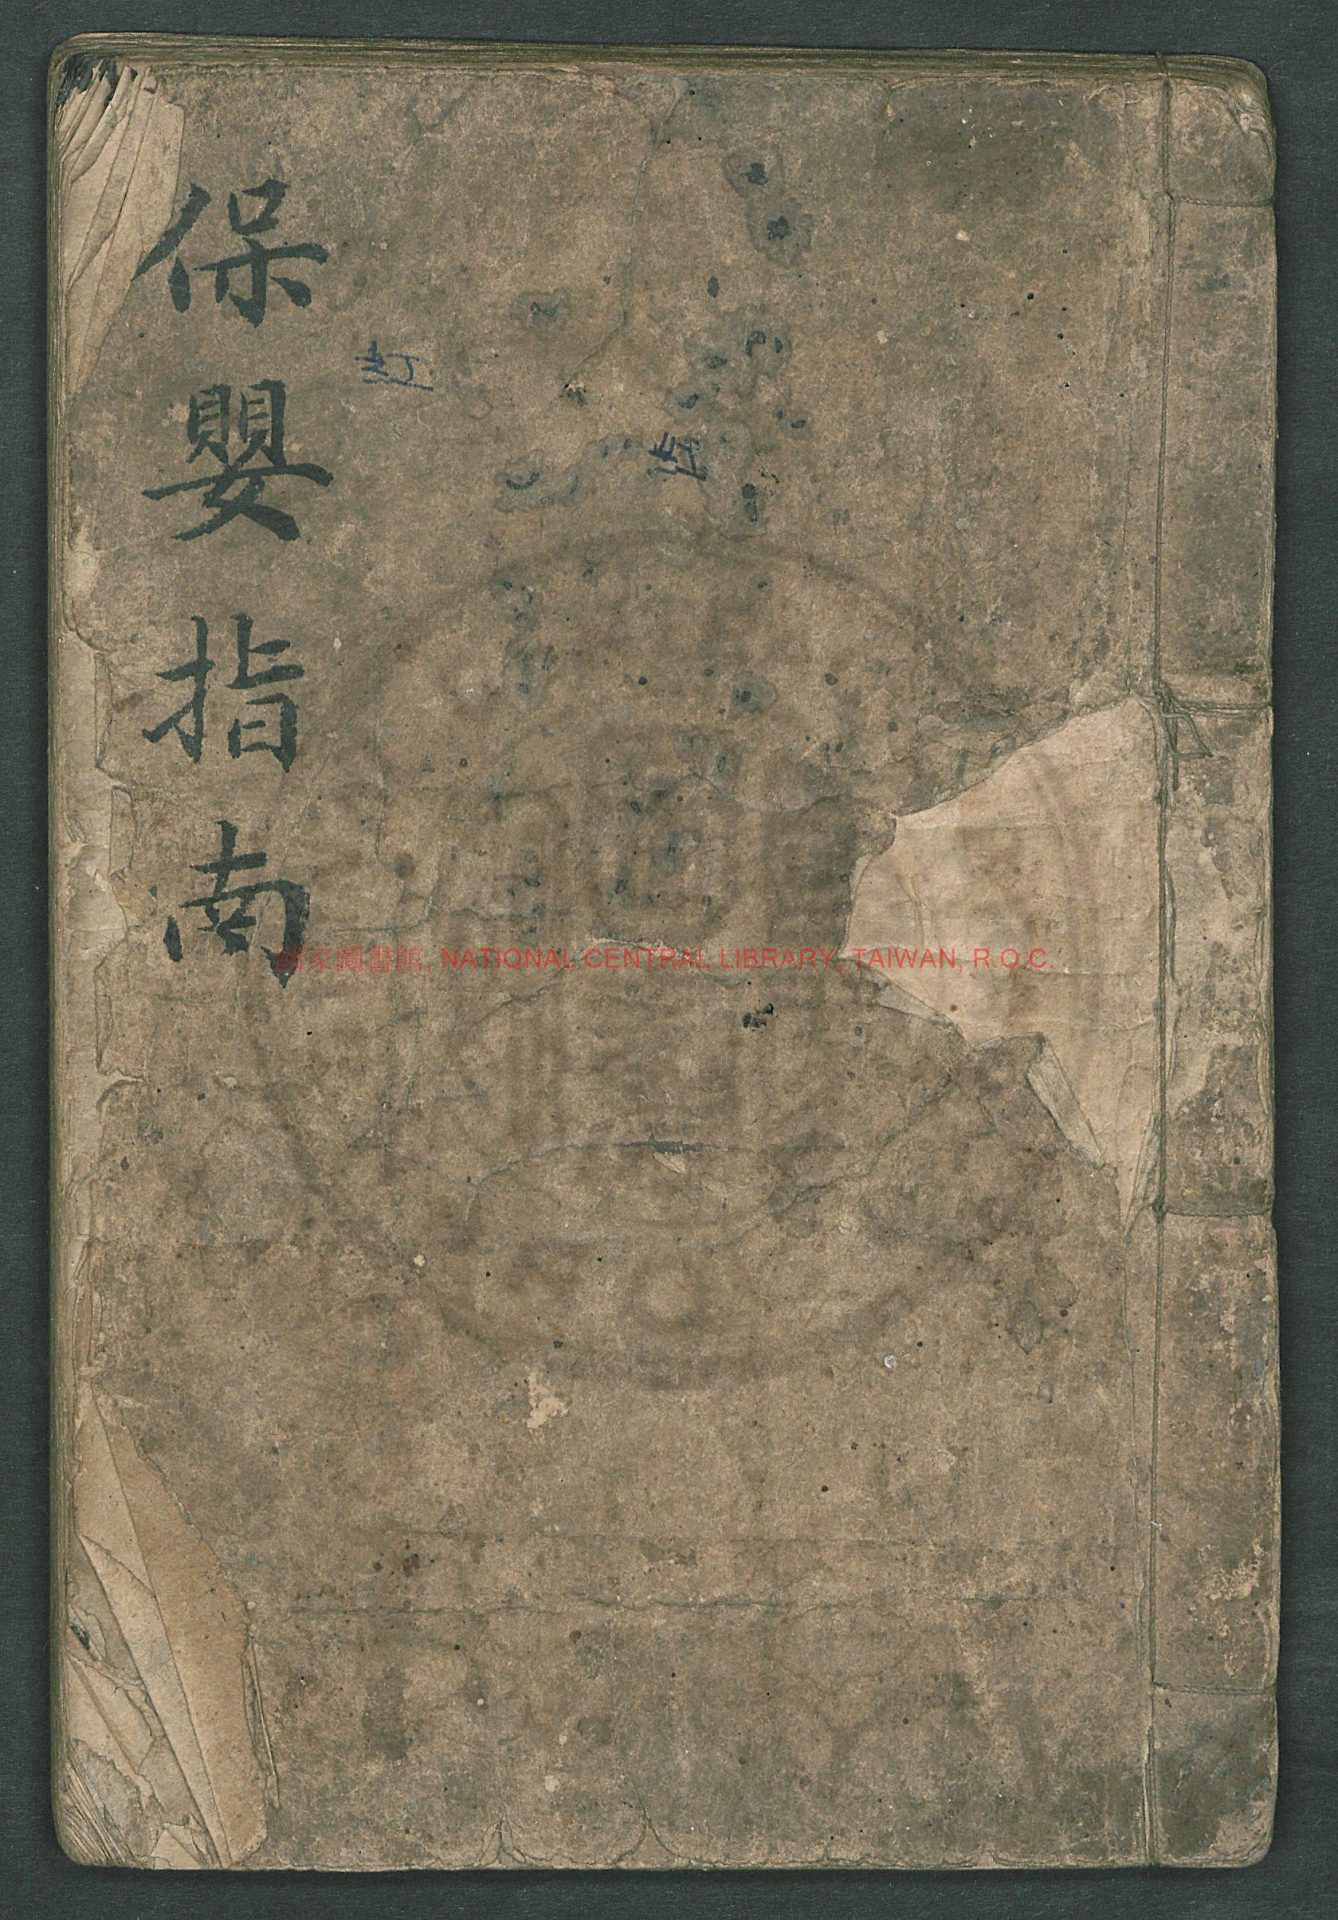 保嬰指南
國家圖書館, NATIONAL CENTRAL LIBRARY, TAIWAN, R.O.C.